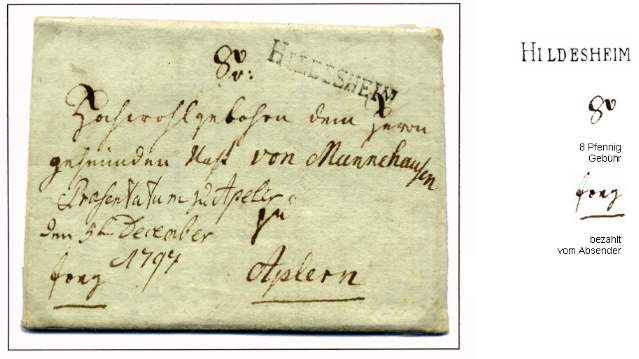 HILDESHEIM
Hochwohlgebohren dem Herrn
geheimden Raht von Münnehausen
Præsentatum zu Apeler
den 5ten December
1797
zu
Aplern
HILDESHEIM
8 Pfennig
Gebühr
bezahlt
vom Absender